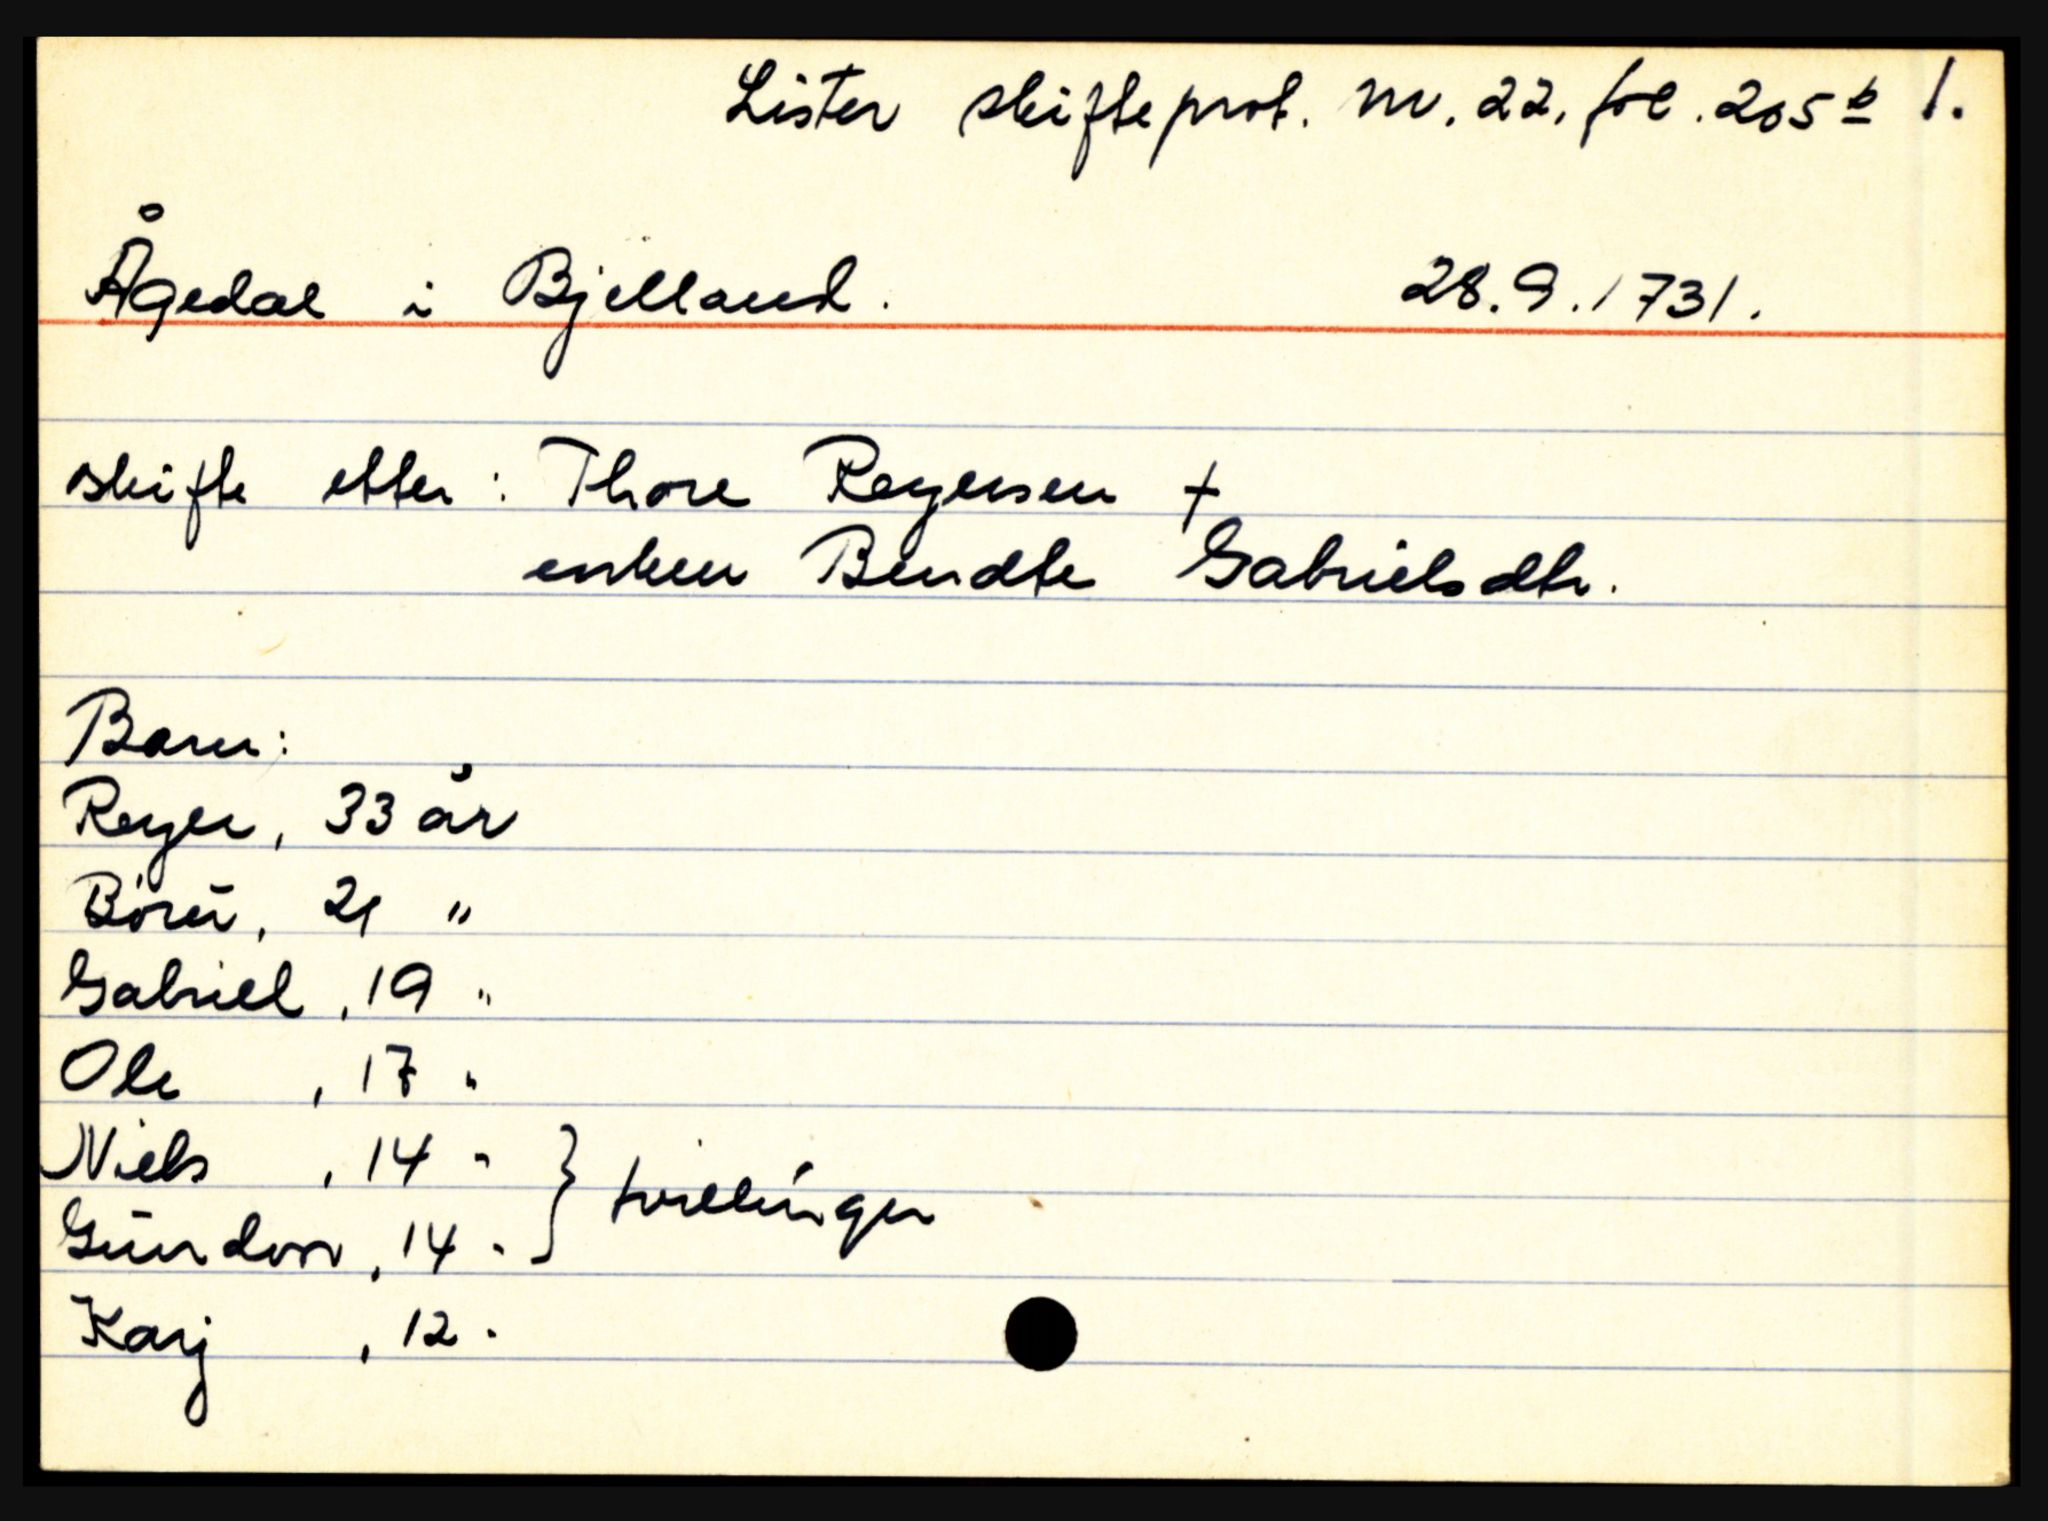 Lister skifteprot. nr. 22, fol. 205 b 1.
Ågedal i Bjelland. 28.9.1731.
skifte etter: Thore Reyersen +
enken Bendte Gabrielsdtr.
Barn:
Reyer, 33 år
Børü, 21 "
Gabriel, 19 "
Ole, 17 "
Niels, 14 "
Gundor, 14 " } tvillinger
Karj, 12 "